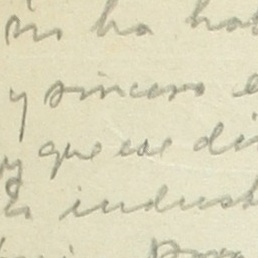 no ha hab
y sincero e
y que ese di
es indust